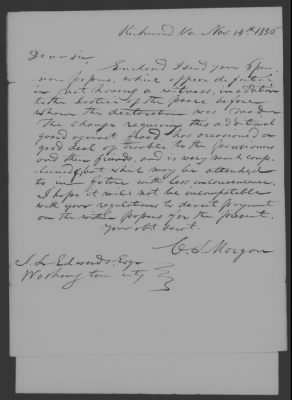 Richmond Va. Nov. 14th 1836
Dear sir,
Enclosed I send you Pen-
sion papers, which appear defective
in not having a witness, in addition
to the Justice of the peace before
whom the declaration was made
The change requiring this additional
guard against fraud has occasioned a
good deal of trouble to the pensioners
and their friends, and is very much comp-
lained of but which may be attended
to in future with less inconvenience.
I hope it will not be incompatible
with your regulations to direct payment
on the within papers for the present.
Your obt. Servt.
C. S. Morgan
J. L. Edwards Esqr
Washington city